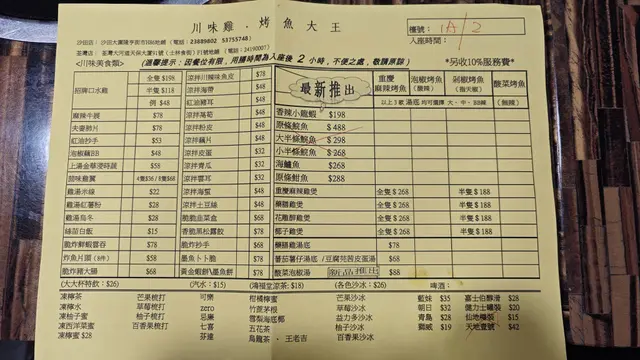 川味雞．烤魚大王
檯號： 1A / 2
入座時間：
沙田店：沙田大圍隆亨街市H86地鋪（電話：23889802 53755748）
荃灣店：荃灣大河道天保大廈91號（士林食街）F1號地鋪（電話：24190007）
<川味美食類>
(溫馨提示：因餐位有限，用膳時間為入座後 2 小時，不便之處，敬請原諒)
*另收10%服務費*
招牌口水雞 全隻 $198
半隻 $98
例 $48
麻辣牛𦟌 $78
夫妻肺片 $78
紅油抄手 $53
泡椒蘸BB $48
上湯金華浸時蔬 $58
雞湯米線 $22
雞湯紅薯粉 $28
雞湯烏冬 $28
絲苗白飯 $15
脆炸鮮蝦雲吞 $78
炸魚片頭（8件） $58
脆炸豬大腸 $68
涼拌川辣味魚皮 $78
涼拌海帶 $48
紅油豬耳 $48
涼拌萵筍 $48
涼拌粉皮 $48
涼拌藕片 $48
涼拌皮蛋 $32
涼拌青瓜 $32
涼拌雲耳 $32
涼拌海蜇 $48
涼拌土豆絲 $48
脆脆韭菜盒 $68
香脆黑松露餃 $78
脆炸抄手 $68
墨魚卜卜脆 $78
黃金蝦餅\墨魚餅 $78
最新推出
重慶麻辣烤魚
泡椒烤魚（酸辣）
剁椒烤魚（指天椒）
酸菜烤魚（酸辣）
香辣小龍蝦 $198
原條鯇魚 $488
大半條鯇魚 $298
小半條鯇魚 $268
海鱸魚 $268
原條鮒魚 $288
重慶麻辣雞煲 全隻$268 半隻$188
藥膳雞煲 全隻$268 半隻$188
花雕醉雞煲 全隻$268 半隻$188
椰子雞煲 全隻$268 半隻$188
藥膳雞湯底 $78
番茄薯仔湯底/豆腐芫茜皮蛋湯 $68
酸菜泡椒湯 新品推出 $88
(大大杯特飲：$26) (汽水：$15) (鴻福堂涼茶：$18) (各色沙冰：$26) 啤酒：
凍檸茶 芒果梳打 可樂 柑橘檸蜜 芒果沙冰 藍妹 $35 嘉士伯醇滑 $28
凍檸水 草莓梳打 zero 竹蔗茅根 草莓沙冰 朝日 $32 健力士罐裝 $20
凍柚子蜜 柚子梳打 忌廉 雪梨海底椰 益力多沙冰 青島 $28 仙地檯裝 $15
凍西洋菜蜜 百香果梳打 七喜 五花茶 柚子沙冰 獅威 $19 天地壹號 $42
凍檸蜜 $28 芬達 烏龍茶．王老吉 百香果沙冰